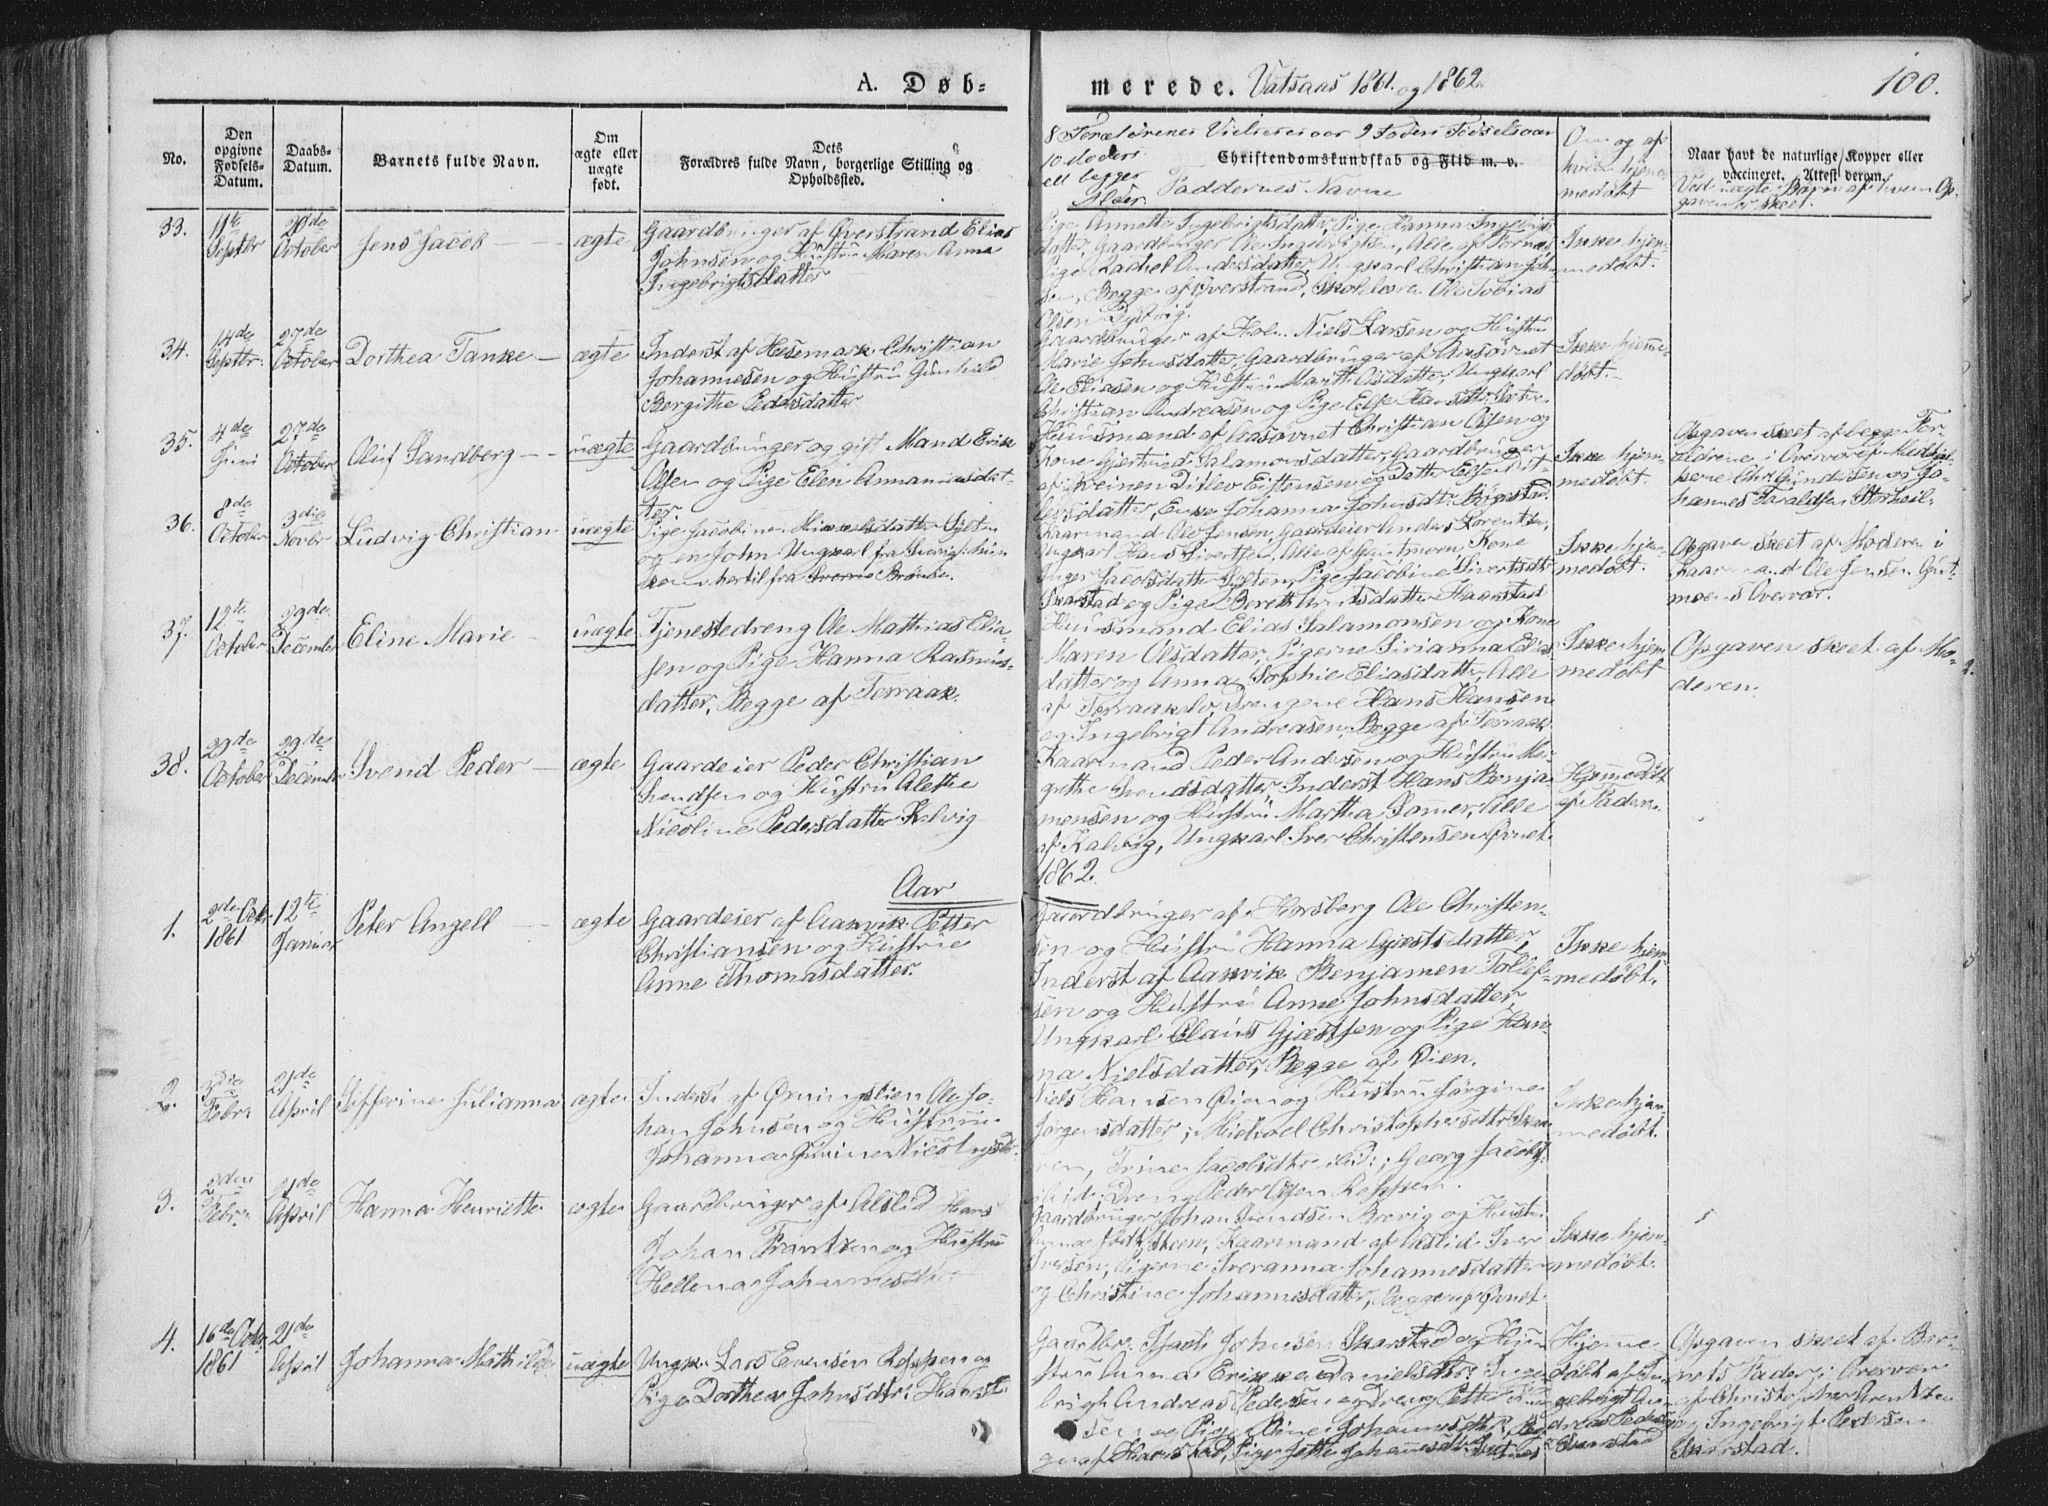 A. Døb-
merede. Vatsaas 1861. og 1862.
100.
No.
Den opgivne Fødsels-Datum.
Daabs-Datum.
Barnets fulde Navn.
Om ægte eller uægte født.
Dets Forældres fulde Navn, borgerlige Stilling og Opholdssted.
8 Forældrenes Vielsesaar 9 Faders Fødselsaar
10 Moders
ell begges
Alder
Christendomskundskab og Flid m. v.
Faddernes Navne
Om og af
hvem hjem-
medøbt
Naar havt de naturlige Kopper eller vaccineret. Attest derom.
Ved uægte Børn af hvem Op-
gaven er skeet.
33.
11te
Septbr
20de
October
Jens Jacob
ægte
Gaardbruger af Øverstrand Elias
Johnsen og Hustru Maren Anna
Ingebrigtsdatter
Pige Annette Ingebrigtsdatter, Pige Hanna Ingebrigts-
datter, Gaardbruger Ole Ingebrigtsen, Alle af Tornes
Pige Rachel Andersdatter, Ungkarl Christian Joh-
sen, Begge af Øverstrand, Skolelærer Ole Tobias
Olsen
Ikke hjem-
medøbt.
34.
14de
Septbr.
27de
October
Dorthea Tanke
ægte
Inderst af Hesemark Christian
Johannesen og Hustru Gunhild
Bergithe Pedersdatter
Gaardbruger af Niels Larsen og Hustru
Marie Johnsdatter, Gaardbruger af Aasøvnet
Ole Eliasen og Hustru Maritt Olsdatter, Ungkarl
Christian Andreasen og Pige Else Hansdtr
Ikke hjemme-
døbt.
35.
4de
Juni
27de
October
Oluf Sandberg
uægte
Gaardbruger og gift Mand Erik
Olsen og Pige Elen Annaniasdat-
ter
Huusmand af Aasøvnet Christian Olsen og
Kone Gjertrud Salamonsdatter, Gaardbruger
af Kveinen Ditlev Eistensen og Datter Else Dit-
levsdatter, Enke Johanna Johnsdtr.
Ikke hjem-
medøbt.
Opgaven skeet af begge For-
ældrene i Overvær af Medhjæl-
perne Chr Gundersen og Jo-
hannes Haraldsen
36.
8de
October
3die
Novbr
Ludvig Christian
uægte
Pige Jacobine Mikkelsdatter Sylten
og en John Ungkarl fra Sverrig, hun
kom hertil fra Brønøe.
Kaarmand Ole Jensen, Gaardeier Anders Lorentsen,
Ungkarl Hans Sivertsen, Alle af Gutmoen, Kone
Inger Jacobsdatter Sylten, Pige Jacobine Sivertsdtr
Skarstad og Pige Berett Haarstad
Ikke hjem-
medøbt.
Opgaven skeet af Moderen i
Kaarmand Ole Jensen Gut-
moens Overvær.
37.
12te
October
29de
December
Eline Marie
uægte
Tjenestedreng Ole Mathias Elia-
sen og Pige Hanna Rasmus-
datter, Begge af Terraak.
Huusmand Elias Salamonsen og Kone
Maren Olsdatter, Pigerne Sirianna Elias-
datter og Anna Sophie Eliasdatter, Alle
af Terraak, Drengene Hans Hansen
og Ingebrigt Andreasen, Begge af Terraak
Ikke hjem-
medøbt
Opgaven skeet af Mo-
deren.
38.
29de
October
29de
December
Svend Peder
ægte
Gaardeier Peder Christian
Svendsen og Hustru Alethe
Nicoline Pedersdatter Kalvig
Kaarmand Peder Andersen og Hustru Mar-
grethe Svendsdatter, Inderst Hans Benja-
mensen og Hustru Martha Samer, Alle
af Kalvig, Ungkarl Iver Christensen Øvnet.
Hjemmedøbt
af Faderen
Aar
1862.
1.
2de Octr.
1861
12te
Januar
Peter Angell
ægte
Gaardeier af Aakvik Petter
Christiansen og Hustrue
Anne Thomasdatter.
Gaardbruger af Horsberg Ole Christen-
sen og Hustru Hanna Gjestsdatter,
Inderst af Aakvik Benjamen Tollef-
sen og Hustru Anne Johnsdatter,
Ungkarl Claus Gjæstsen og Pige Han-
na Nielsdatter, Begge af Øien.
Ikke hjem-
medøbt.
2.
3die
Febr.
21de
April
Sefferine Julianna
ægte
Inderst af Ørningslien Ole Jo-
han Johnsen og Hustrue
Johanna Nicolaysdtr.
Niels Hansen Øien og Hustru Jørgine
Jørgensdatter, Michael Christophersen
Trine Jacobsdtr ibid:; Georg Jacobs.
ibid. Dreng Peder Olsen Reppen.
Ikke hjem-
medøbt.
3.
2den
Febr.
21de
April
Hanna Henriette
ægte
Gaardbruger af Alslid Hans
Johan Frantsen og Hustru
Hellena Johannesdtr
Gaardbruger Johan Svendsen Brevig og Hustru
Anna født Steen, Kaarmand af Alslid Iver
Iversen, Pigerne Iveranna Johannesdatter
og Christine Johannesdatter, Begge af Øvnet
Ikke hjem-
medøbt.
4.
16de Octbr.
1861
21de
April
Johanna Mathilde
uægte
Ungk. Lars Evensen Reppen og
Pige Dorthea Johnsdtr. Haarst
Gaardbr. Johnsen Skarstad og Hu-
stru Anna Danielsdtr. Inge-
brigt Andreas Pedersen og Dreng Petter
sen og Pige Oline Johannesdtr, Beg-
ge af Haarstad, Pige Jette Johannesdtr
Hjemme-
døbt af In-
gebrigt An-
dreas Pedersen
Skarstad
Opgaven skeet af Bar-
nets Fader i Overvær
af Christopher Arentsen
og Ingebrigt Pedersen
Skarstad.